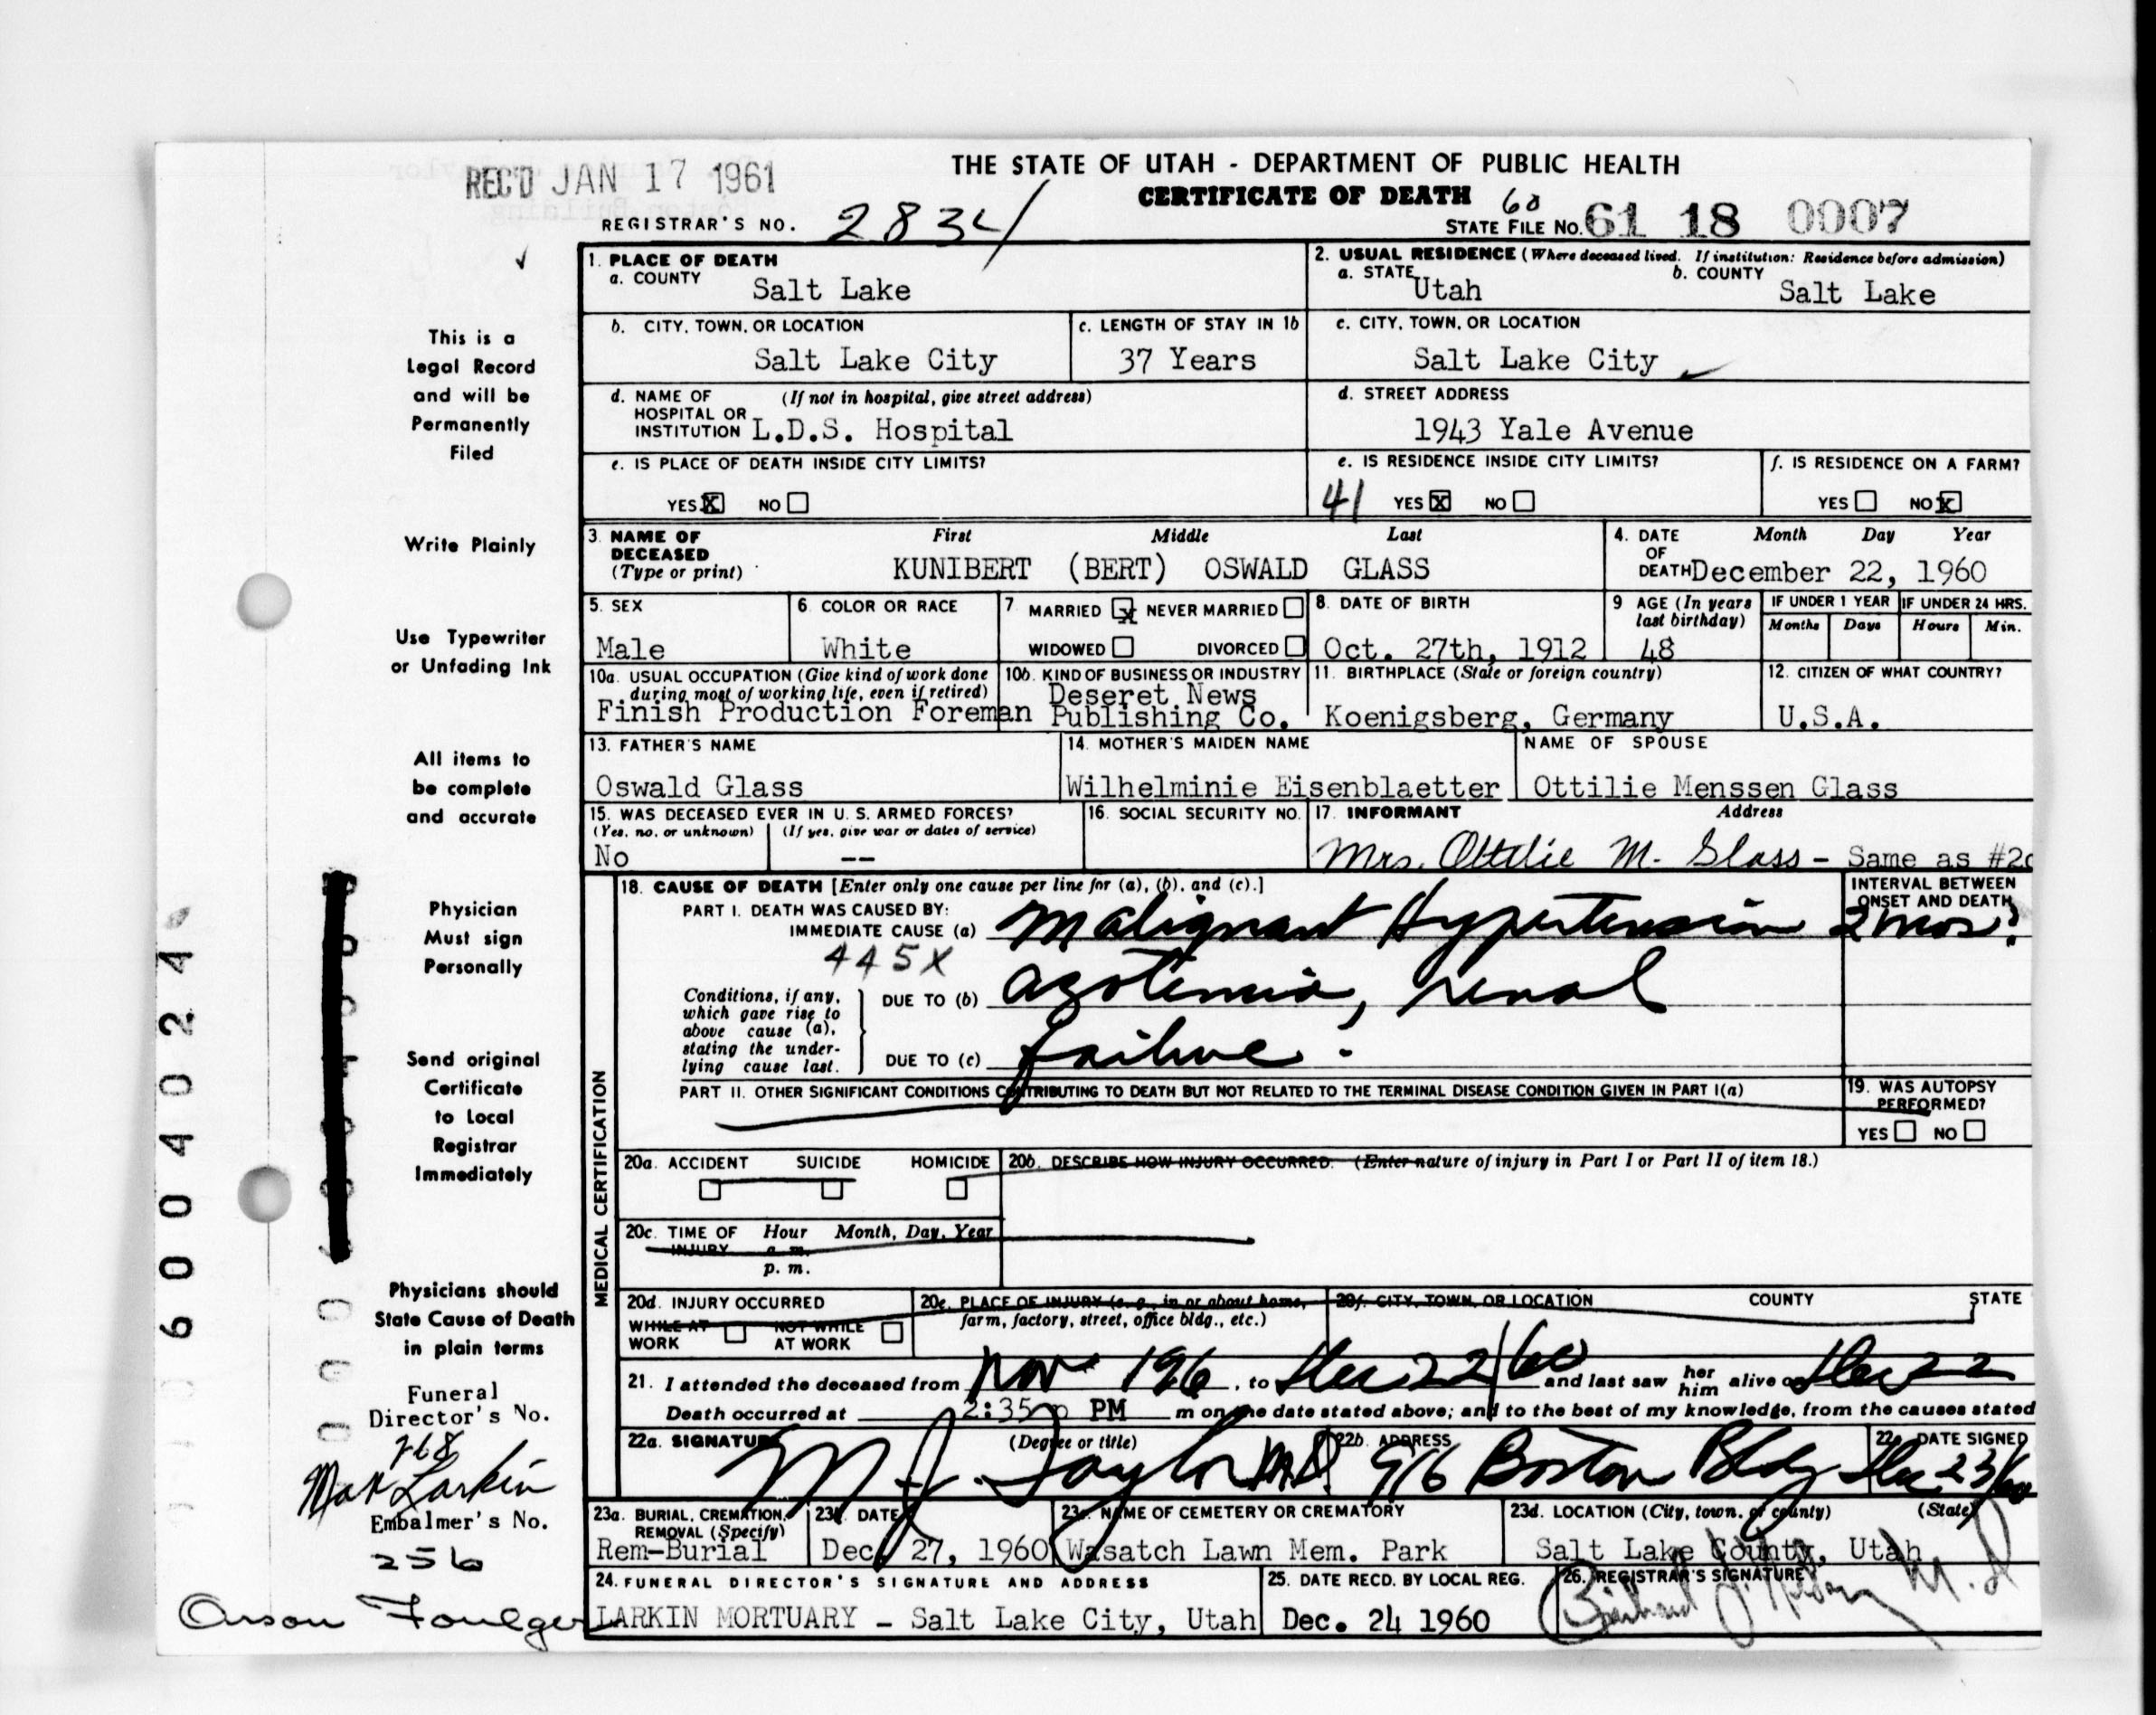 REC'D JAN 17 1961
THE STATE OF UTAH - DEPARTMENT OF PUBLIC HEALTH
CERTIFICATE OF DEATH
REGISTRAR'S NO. 2834
60
STATE FILE NO. 61 18 0007
1. PLACE OF DEATH
a. COUNTY Salt Lake
2. USUAL RESIDENCE (Where deceased lived. If institution: Residence before admission)
a. STATE Utah b. COUNTY Salt Lake
b. CITY, TOWN, OR LOCATION
Salt Lake City
c. LENGTH OF STAY IN 1b
37 Years
c. CITY, TOWN, OR LOCATION
Salt Lake City
d. NAME OF HOSPITAL OR INSTITUTION (If not in hospital, give street address)
L.D.S. Hospital
d. STREET ADDRESS
1943 Yale Avenue
e. IS PLACE OF DEATH INSIDE CITY LIMITS?
YES X NO
e. IS RESIDENCE INSIDE CITY LIMITS?
41 YES X NO
f. IS RESIDENCE ON A FARM?
YES NO X
3. NAME OF DECEASED (Type or print)
First Middle Last
KUNIBERT (BERT) OSWALD GLASS
4. DATE OF DEATH Month Day Year
December 22, 1960
5. SEX
Male
6. COLOR OR RACE
White
7. MARRIED X NEVER MARRIED
WIDOWED DIVORCED
8. DATE OF BIRTH
Oct. 27th, 1912
9 AGE (In years last birthday)
48
IF UNDER 1 YEAR
Months Days
IF UNDER 24 HRS.
Hours Min.
10a. USUAL OCCUPATION (Give kind of work done during most of working life, even if retired)
Finish Production Foreman
10b. KIND OF BUSINESS OR INDUSTRY
Deseret News
Publishing Co.
11. BIRTHPLACE (State or foreign country)
Koenigsberg, Germany
12. CITIZEN OF WHAT COUNTRY?
U.S.A.
13. FATHER'S NAME
Oswald Glass
14. MOTHER'S MAIDEN NAME
Wilhelminie Eisenblaetter
NAME OF SPOUSE
Ottilie Menssen Glass
15. WAS DECEASED EVER IN U. S. ARMED FORCES?
(Yes, no, or unknown) (If yes, give war or dates of service)
No --
16. SOCIAL SECURITY NO.
17. INFORMANT Address
Mrs. Ottilie M. Glass - Same as #2c
MEDICAL CERTIFICATION
18. CAUSE OF DEATH [Enter only one cause per line for (a), (b), and (c).]
INTERVAL BETWEEN ONSET AND DEATH
PART I. DEATH WAS CAUSED BY:
IMMEDIATE CAUSE (a) Malignant Hypertension 2 mos?
445X
Conditions, if any, which gave rise to above cause (a), stating the underlying cause last.
DUE TO (b) azotemia, renal
DUE TO (c) failure.
PART II. OTHER SIGNIFICANT CONDITIONS CONTRIBUTING TO DEATH BUT NOT RELATED TO THE TERMINAL DISEASE CONDITION GIVEN IN PART I(a)
19. WAS AUTOPSY PERFORMED?
YES NO
20a. ACCIDENT SUICIDE HOMICIDE
20b. DESCRIBE HOW INJURY OCCURRED. (Enter nature of injury in Part I or Part II of item 18.)
20c. TIME OF INJURY Hour Month, Day, Year
a. m.
p. m.
20d. INJURY OCCURRED
WHILE AT WORK NOT WHILE AT WORK
20e. PLACE OF INJURY (e. g., in or about home, farm, factory, street, office bldg., etc.)
20f. CITY, TOWN, OR LOCATION COUNTY STATE
21. I attended the deceased from Nov 196, to Dec 22/60 and last saw her him alive on Dec 22
Death occurred at 2:35 PM m on the date stated above; and to the best of my knowledge, from the causes stated
22a. SIGNATURE (Degree or title)
M J. Taylor MD
22b. ADDRESS
916 Boston Bldg
22c. DATE SIGNED
Dec 23/60
23a. BURIAL, CREMATION, REMOVAL (Specify)
Rem-Burial
23b. DATE
Dec. 27, 1960
23c. NAME OF CEMETERY OR CREMATORY
Wasatch Lawn Mem. Park
23d. LOCATION (City, town, or county) (State)
Salt Lake County, Utah
24. FUNERAL DIRECTOR'S SIGNATURE AND ADDRESS
LARKIN MORTUARY - Salt Lake City, Utah
25. DATE RECD. BY LOCAL REG.
Dec. 24 1960
26. REGISTRAR'S SIGNATURE
This is a
Legal Record
and will be
Permanently
Filed
Write Plainly
Use Typewriter
or Unfading Ink
All items to
be complete
and accurate
Physician
Must sign
Personally
Send original
Certificate
to Local
Registrar
Immediately
Physicians should
State Cause of Death
in plain terms
Funeral
Director's No.
768
Max Larkin
Embalmer's No.
256
Orson Foulger
6 0 0 4 0 2 4